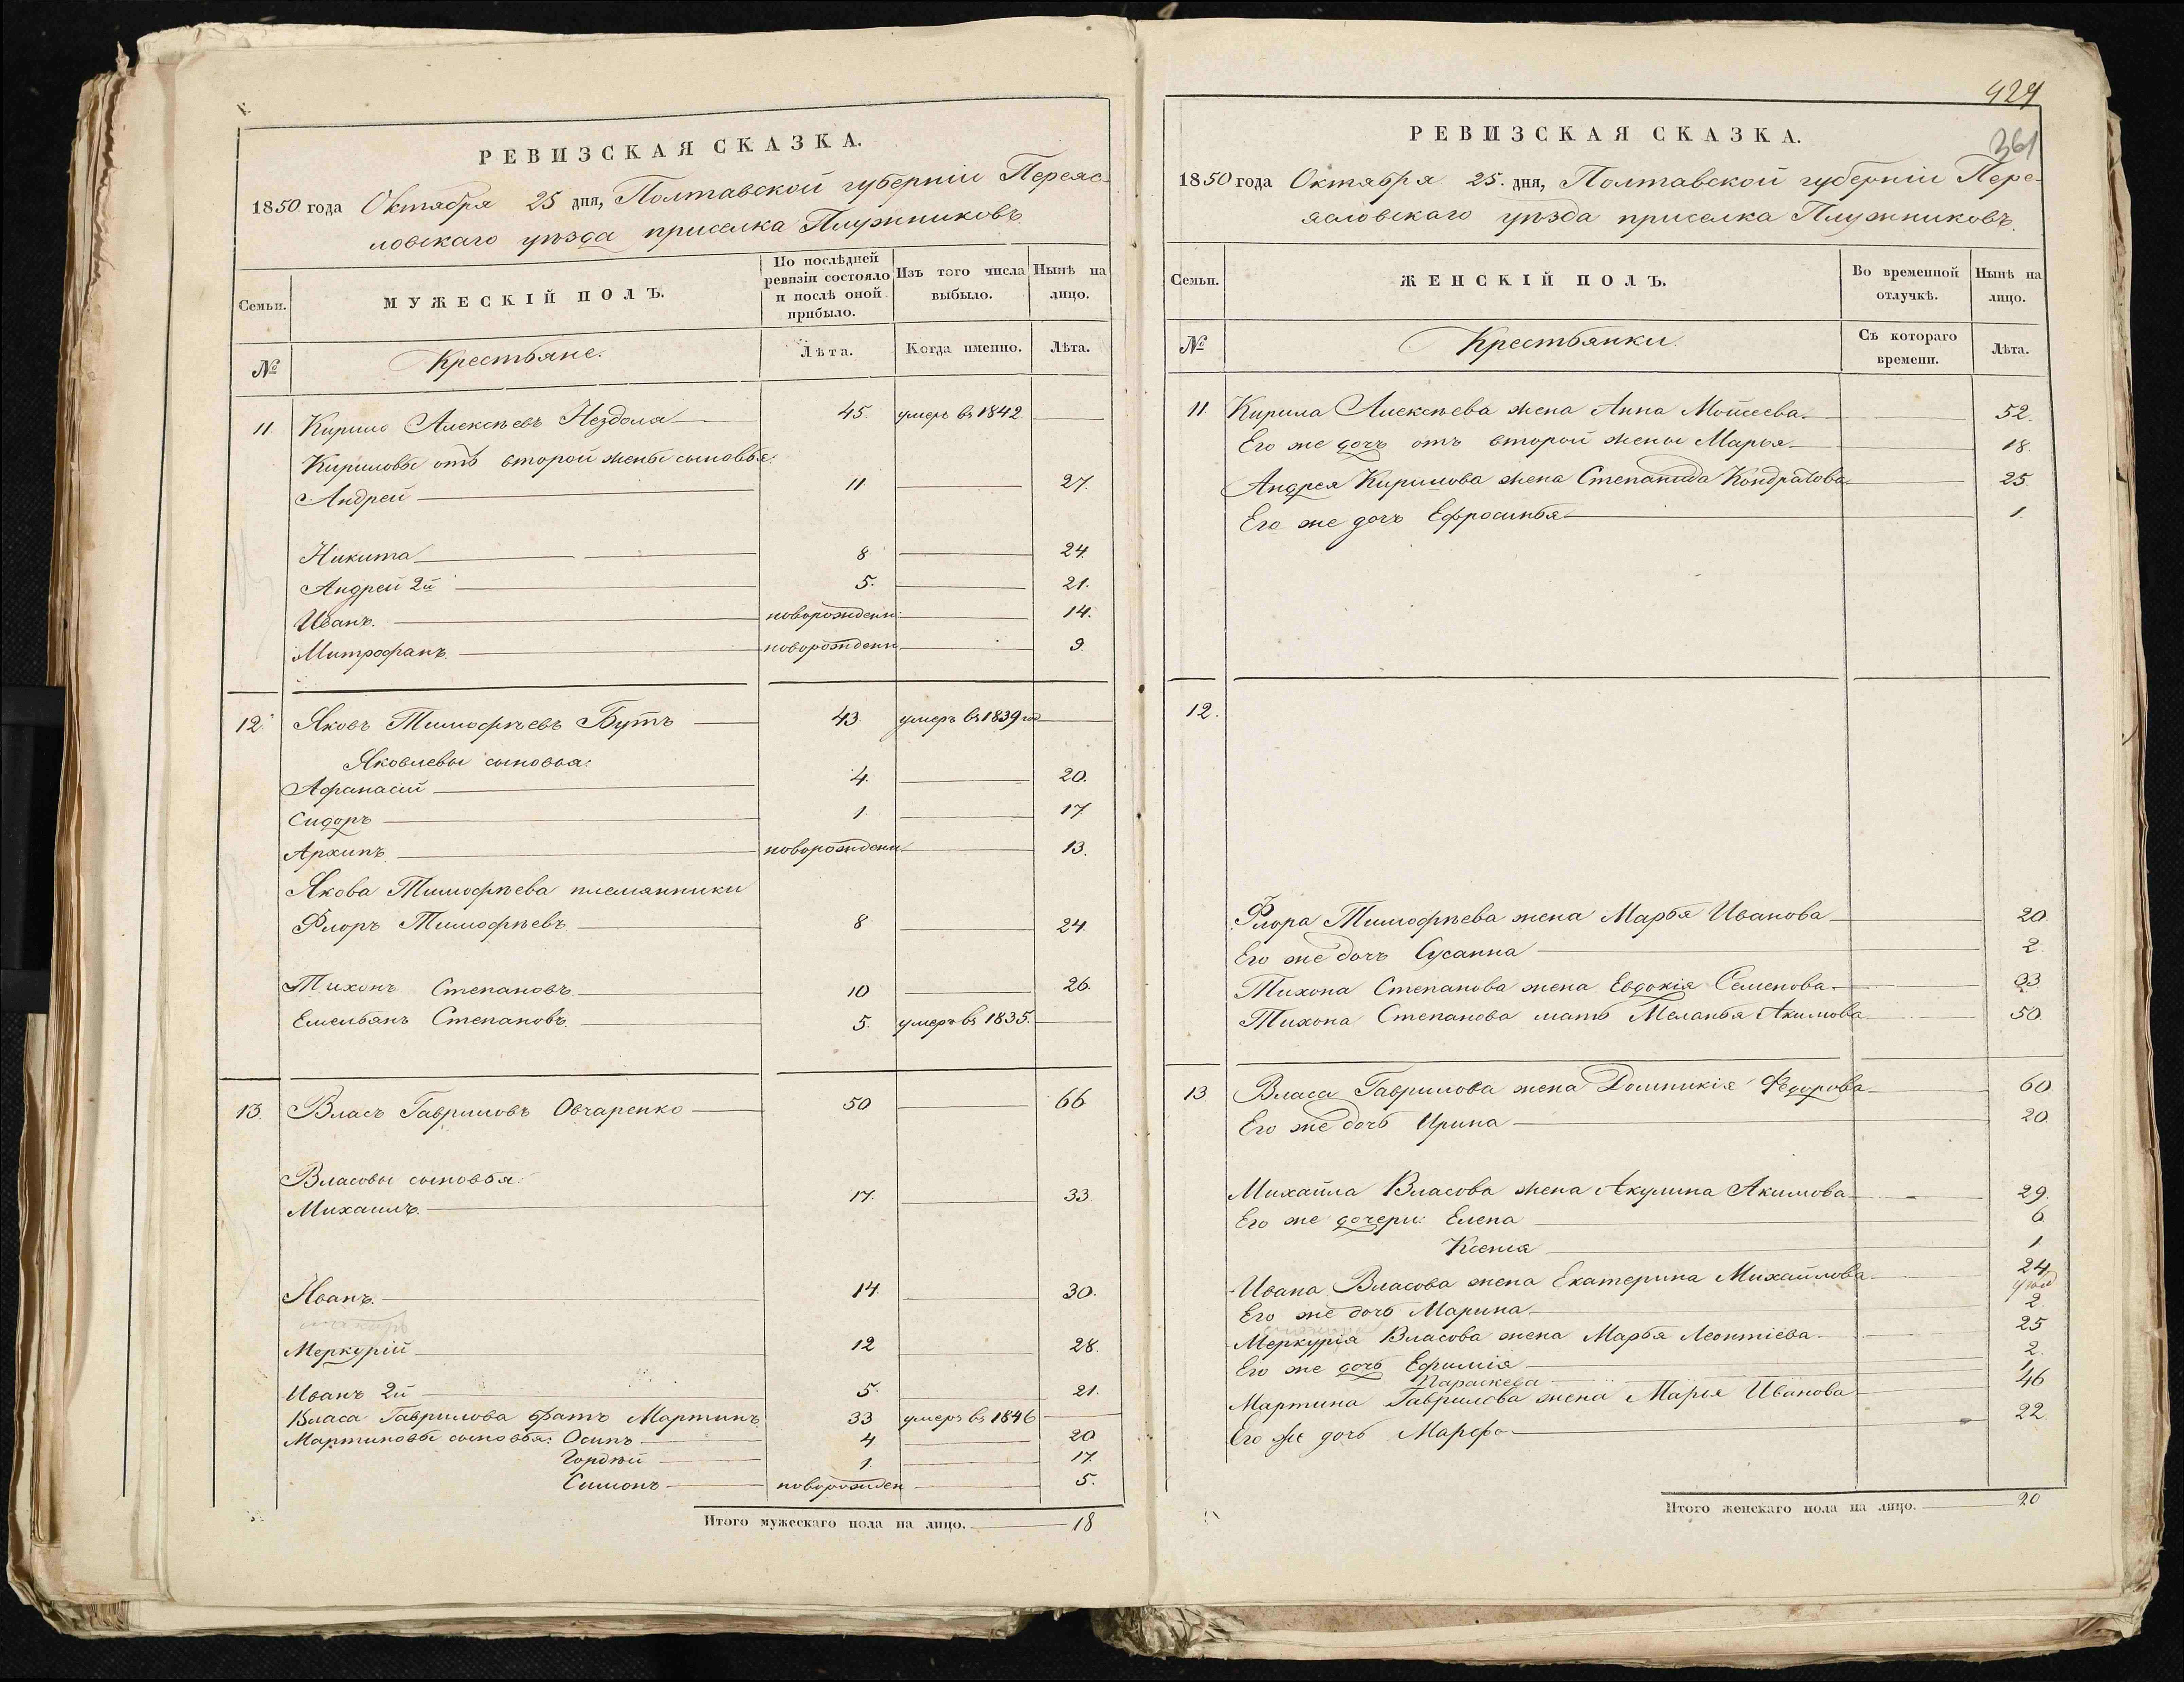 РЕВИЗСКАЯ СКАЗКА.
1850 года Октября 25 дня, Полтавской губерніи Переяс-
ловскаго уѣзда приселка Плужниковъ
Семьи.
МУЖЕСКІЙ ПОЛЪ.
По послѣдней ревизіи состояло и послѣ оной прибыло.
Изъ того числа выбыло.
Нынѣ на лицо.
№
Крестьяне.
Лѣта.
Когда именно.
Лѣта.
11. Кирило Алексѣевъ Нездоля 45 умеръ въ 1842
Кириловы отъ второй жены сыновья:
Андрей 11 27.
Никита 8. 24.
Андрей 2й 5. 21.
Иванъ. новорожденн: 14.
Митрофанъ. новорожденн. 9.
12. Яковъ Тимофѣевъ Бутъ 43 умеръ въ 1839 год
Яковлевы сыновья:
Афанасій 4. 20.
Сидоръ 1. 17
Архипъ новорожденн 13.
Якова Тимофѣева племянники
Флоръ Тимофѣевъ 8 24
Тихонъ Степановъ 10 26.
Емельянъ Степановъ 5. умеръ въ 1835.
13. Власъ Гавриловъ Овчаренко 50 66
Власовы сыновья:
Михаилъ. 17. 33
Иванъ. 14. 30.
Меркурій 12 28.
Иванъ 2й 5. 21.
Власа Гаврилова братъ Мартинъ 33 умеръ въ 1846
Мартиновы сыновья: Осипъ 4 20
Гордѣй 1. 17.
Симонъ новорожден 5.
Итого мужескаго пола на лицо. 18
429
361
РЕВИЗСКАЯ СКАЗКА.
1850 года Октября 25. дня, Полтавской губерніи Пере-
ясловскаго уѣзда приселка Плужниковъ.
Семьи.
ЖЕНСКІЙ ПОЛЪ.
Во временной отлучкѣ.
Нынѣ на лицо.
№
Крестьянки.
Съ котораго времени.
Лѣта.
11. Кирила Алексѣева жена Анна Мойсеева 52.
Его же дочь отъ второй жены Марья 18.
Андрея Кирилова жена Степанида Кондратова 25.
Его же дочь Ефросинья 1
12.
Флора Тимофѣева жена Марья Иванова 20
Его же дочь Сусанна 2.
Тихона Степанова жена Евдокія Семенова 33
Тихона Степанова мать Меланья Акимова 50.
13. Власа Гаврилова жена Домникія Федорова 60
Его же дочь Ирина 20
Михайла Власова жена Акулина Акимова 29.
Его же дочери: Елена 6
Ксенія 1
Ивана Власова жена Екатерина Михайлова 24
Его же дочь Марина 2.
Меркурія Власова жена Марья Леонтіева 25
Его же дочь Ефимія 2.
Параскева 1
Мартина Гаврилова жена Марья Иванова 46
Его же дочь Марфа 22
Итого женскаго пола на лицо. 20